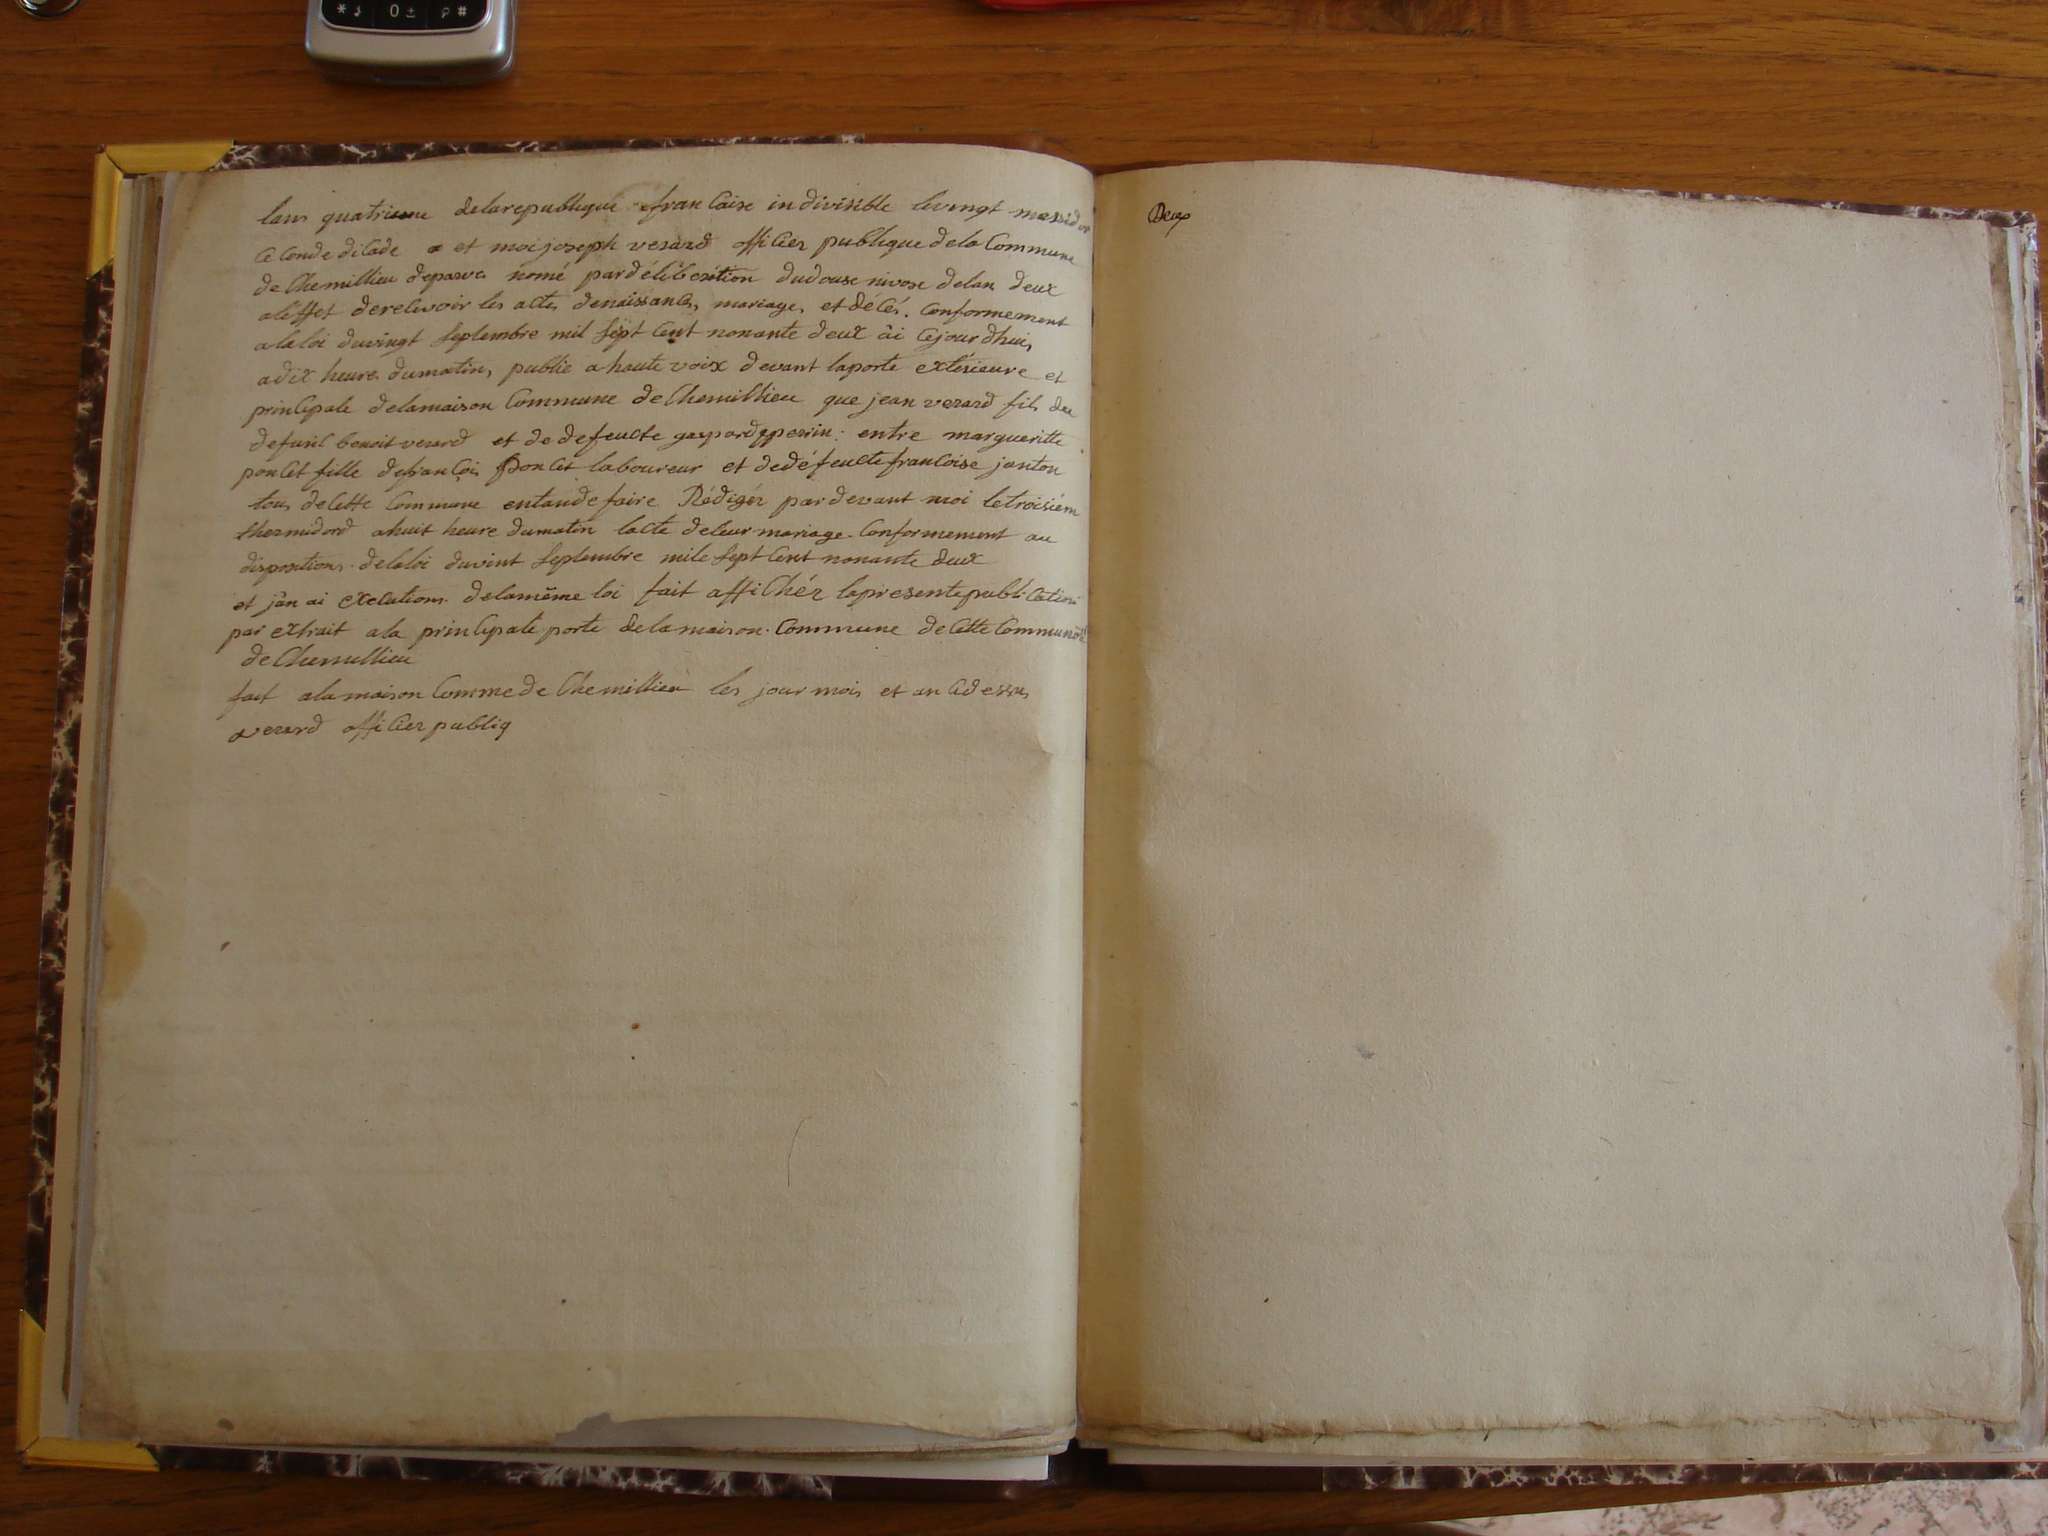 * 0 ± #
lans quatrieme delarepublique francaise indivisible levingt messidor
seconde dicade et moi joseph verard officier publique dela Commune
de Chemillieu deparve nomé pardélibération dudouse nivose delan deux
aleffet derecevoir les actes denaissances, mariages, et décés. Conformement
alaloi duvingt septembre mil sept Cent nonante deux ài cejourdhui,
adix heures dumatin, publié a haute voix devant laporte extérieure et
principale delamaison Commune de Chemillieu que jean verard fils de
defunt benoit verard et de defeucte gaspardepperin: entre margueritte
poncet fille defrançois Poncet laboureur et dedéfeucte francoise janton
tous decette Commune entandefaire Rédigér pardevant moi letroisiém
thermidord ahuit heure dumatin lacte deleurmariage. Conformement au
dispontions. delaloi duvint septembre mile sept Cent nonante deux
et jàn ai executions. delamême loi fait affichér lapresentepublication
par extrait ala principale porte delamaison. Commune de Cette Commune
de Chemillieu
fait alamaison Comme de Chemillieu les jour mois et an cidessus
verard officier publiq
Deux